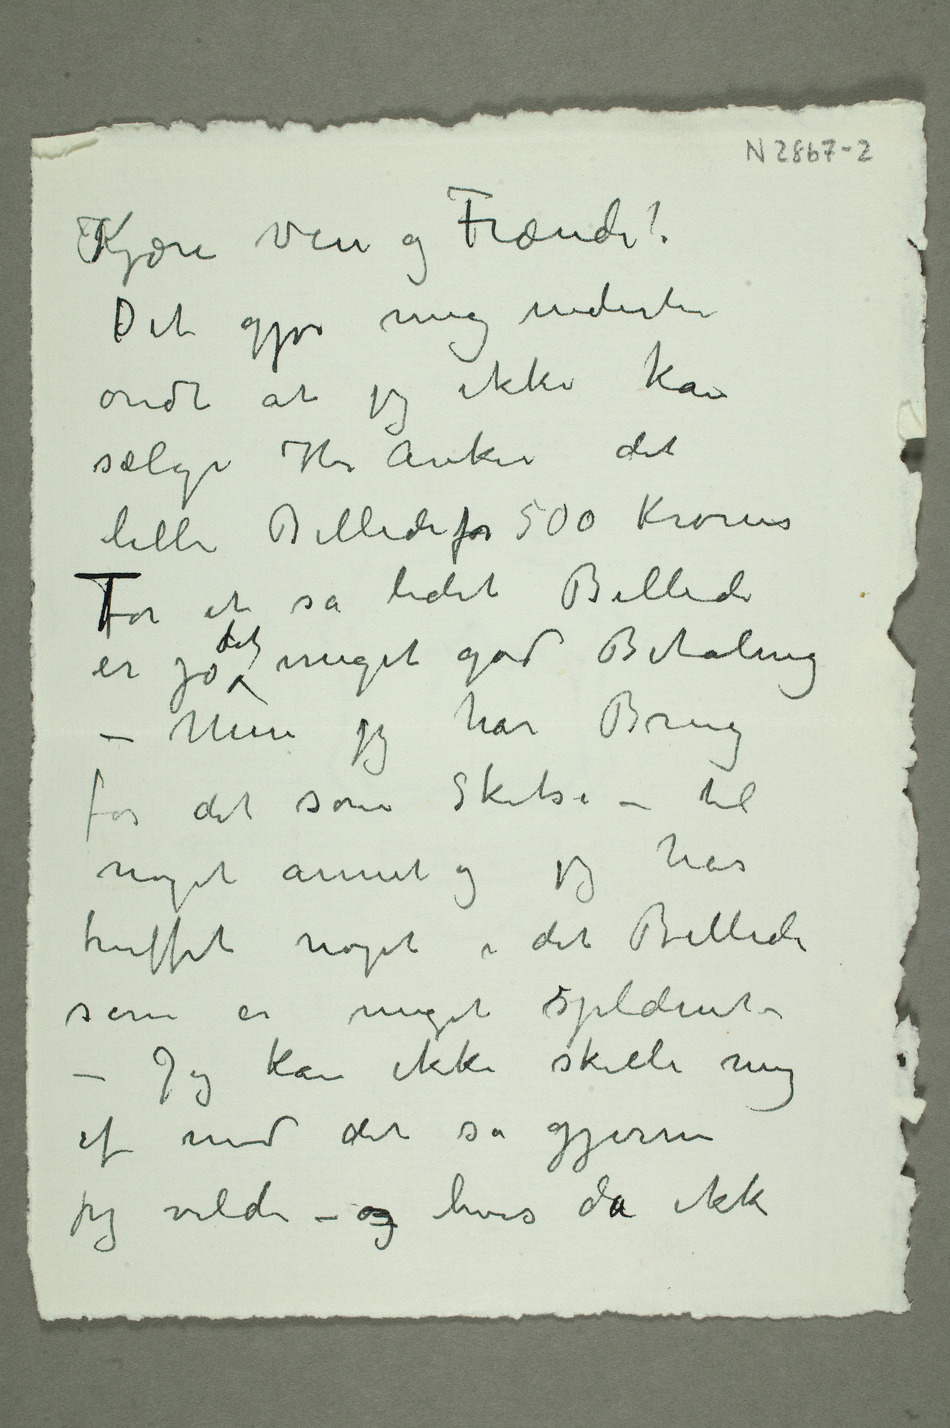 N 2867-2
Kjære Ven og Frænde!
Det gjør mig mederlig
ondt at jeg ikke kan
sælge Hr Anker det
lille Billede for 500 Kroner
For et sa lidet Billede
er jo det meget god Betaling
– Men jeg har Brug
for det som Skitse – til
noget annet og jeg har
truffet noget i det Billede
som er meget spldent –
– Jeg kan ikke skille mig
af med det sa gjerne
jeg vilde – og hvis da ikk